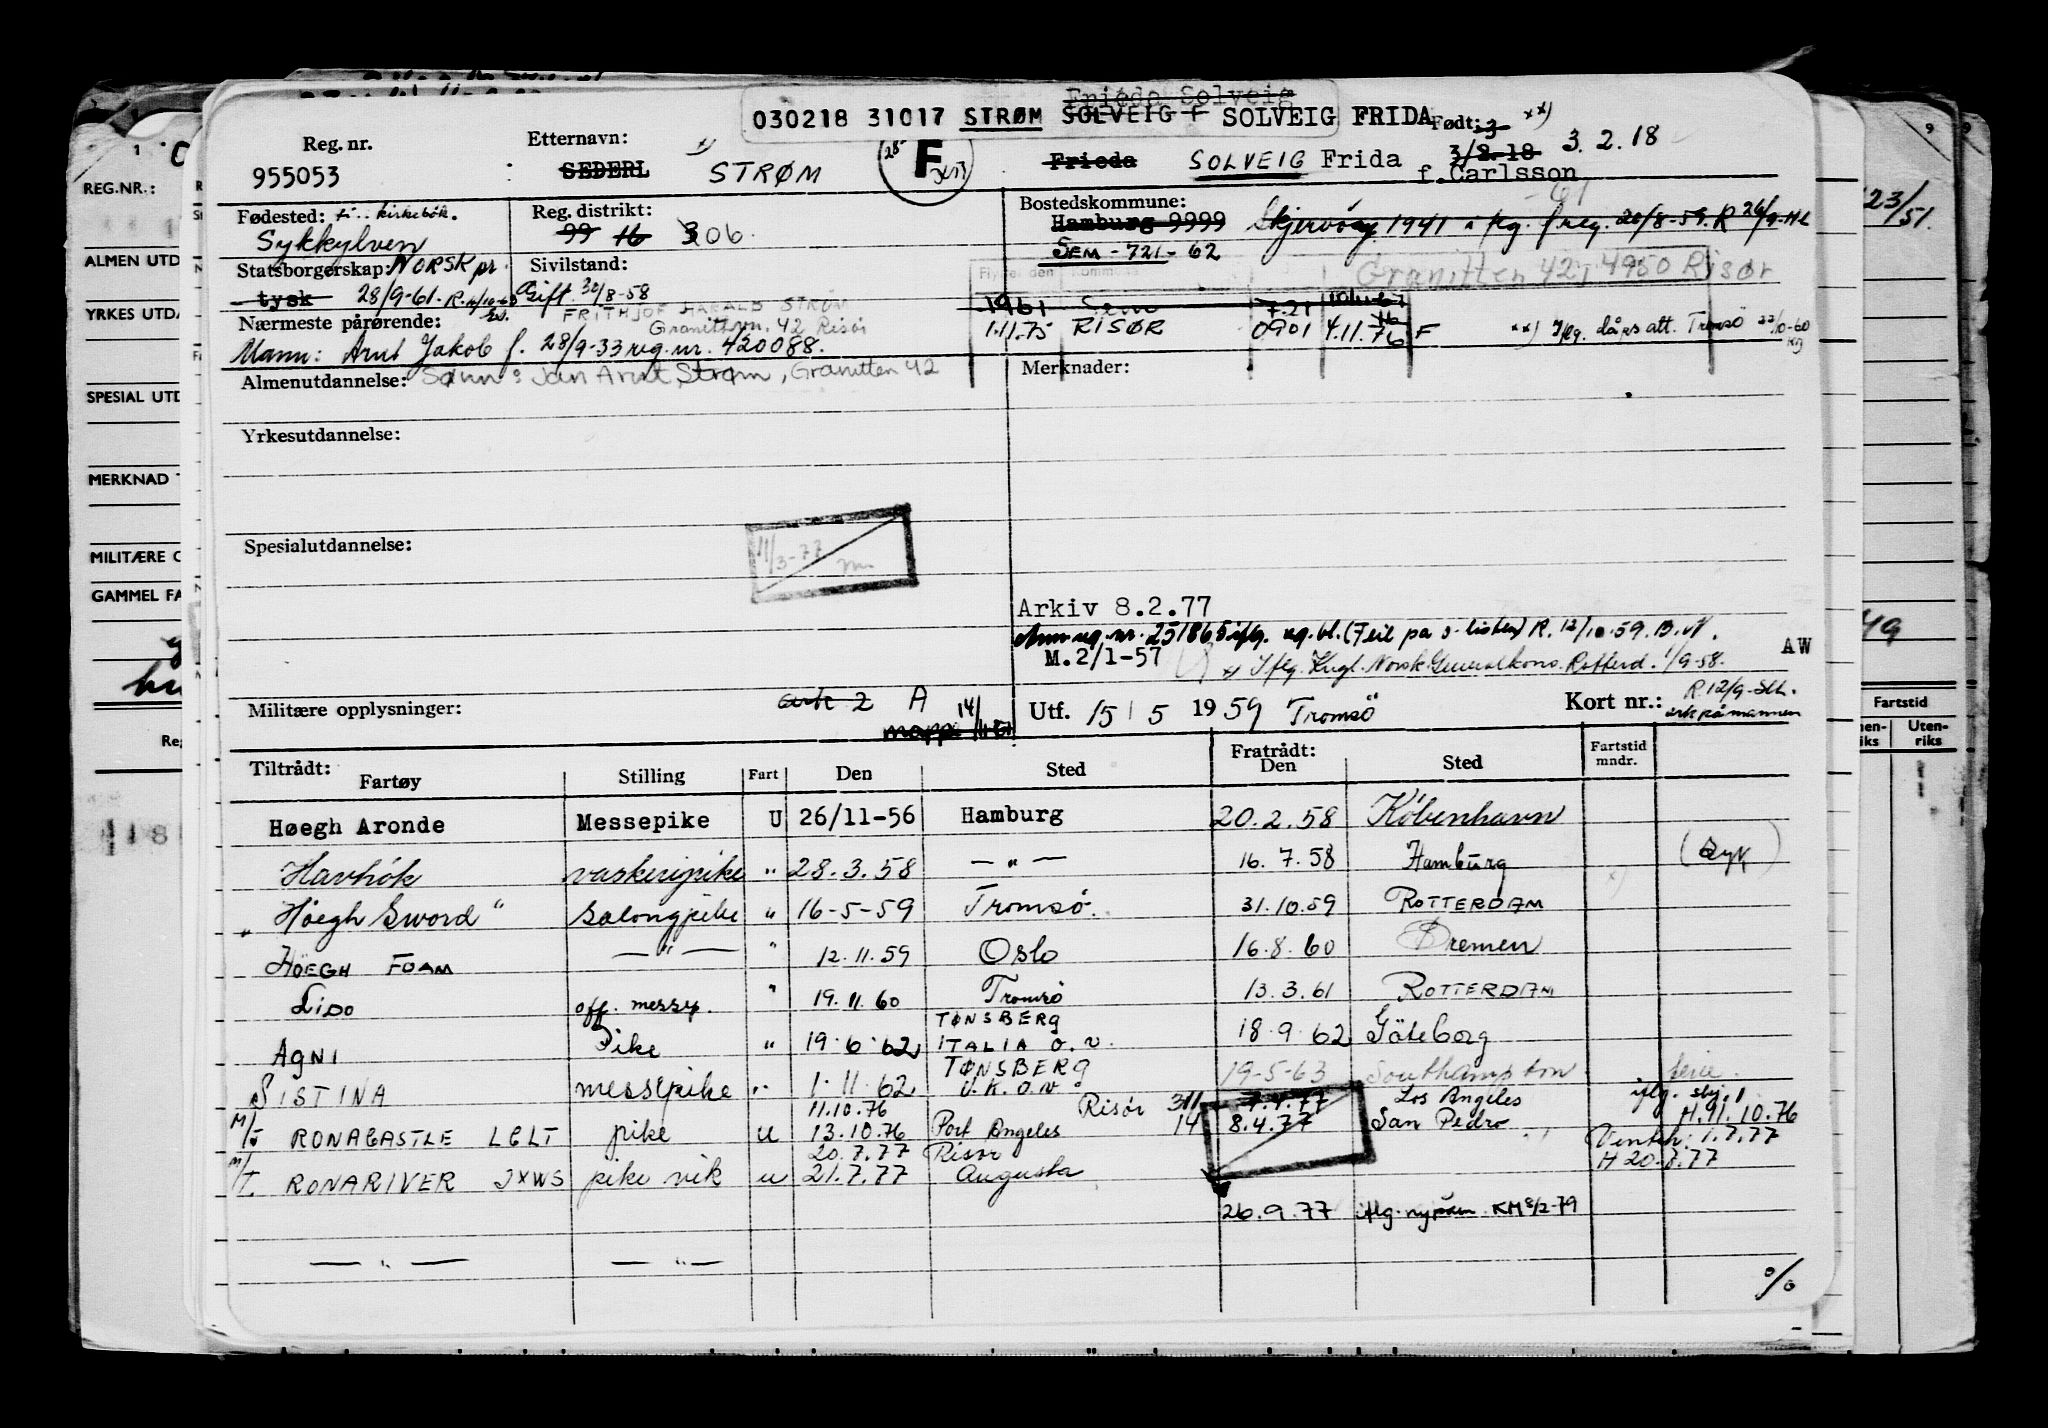 Frieda Solveig
030218 31017 STRØM SOLVEIG F SOLVEIG FRIDA
Reg. nr.
955053
Etternavn:
SEDERL
STRØM
F
Frieda SOLVEIG Frida
Født: 3
3/2-18 3.2.18
f.Carlsson
Fødested: kirkebok.
Sykkylven
Reg. distrikt:
99 16 306
Bostedskommune:
Hamburg 9999
SEM - 721 - 62
Statsborgerskap: NORSK pr.
tysk 28/9-61.
Sivilstand:
Gift 30/8-58
Granitten 42, 4950 Risør
1961 Sem 7.21
1.11.75 RISØR 0901 4.11.76 F
xx) Ifлg. dåpsatt. Tromsö
Nærmeste pårørende:
FRITHJOF HARALD STRØM
Granittvn. 42 Risør
Mann: Arnt Jakob f. 28/9-33 reg. nr. 420088.
Almenutdannelse: Sønn: Jan Arnt Strøm, Granitten 42
Merknader:
Yrkesutdannelse:
Spesialutdannelse:
11/3-77
Arkiv 8.2.77
M.2/1-57
x) Iflg. Kngl. Norsk Generalkons. Rotterd. 1/9-58.
AW
R.12/9-58.
Militære opplysninger:
A
14/
Utf. 15 / 5 1959 Tromsö
Kort nr.:
Tiltrådt:
Fartøy Stilling Fart Den Sted
Fratrådt:
Den Sted
Fartstid
mndr.
Høegh Aronde Messepike U 26/11-56 Hamburg 20.2.58 København
Havhök vaskeripike " 28.3.58 — " — 16.7.58 Hamburg
"Höegh Sword" Salongpike " 16-5-59 Tromsö. 31.10.59 ROTTERDAM
HÖEGH FOAM — " — " 12.11.59 Oslo 16.8.60 Bremen
LIDO off. messep. " 19.11.60 Tromsö 13.3.61 ROTTERDAM
TØNSBERG
AGNI Pike " 19.6.62 ITALIA O.V. 18.9.62 Göteborg
TØNSBERG
SISTINA messepike " 1.11.62 U.K.O.V. 19-5-63 Southampton ferie.
11.10.76 Risör 3/11 7.4.77 Los Angeles iflg. sbj.
M/T RONACASTLE LCLT pike u 13.10.76 Port Angeles 14 8.4.77 San Pedro H.11.10.76
20.7.77 Risør Venteh: 1.7.77
M/T RONARIVER JXWS pike vik u 21.7.77 Augusta H 20.7.77
26.9.77 iflg. KM 8/2-79
— " — — " —
%
REG.NR.:
ALMEN UTD
YRKES UTDA
SPESIAL UTD
MERKNAD
MILITÆRE O
GAMMEL FA
23/51.
Fartstid
Uten-
riks